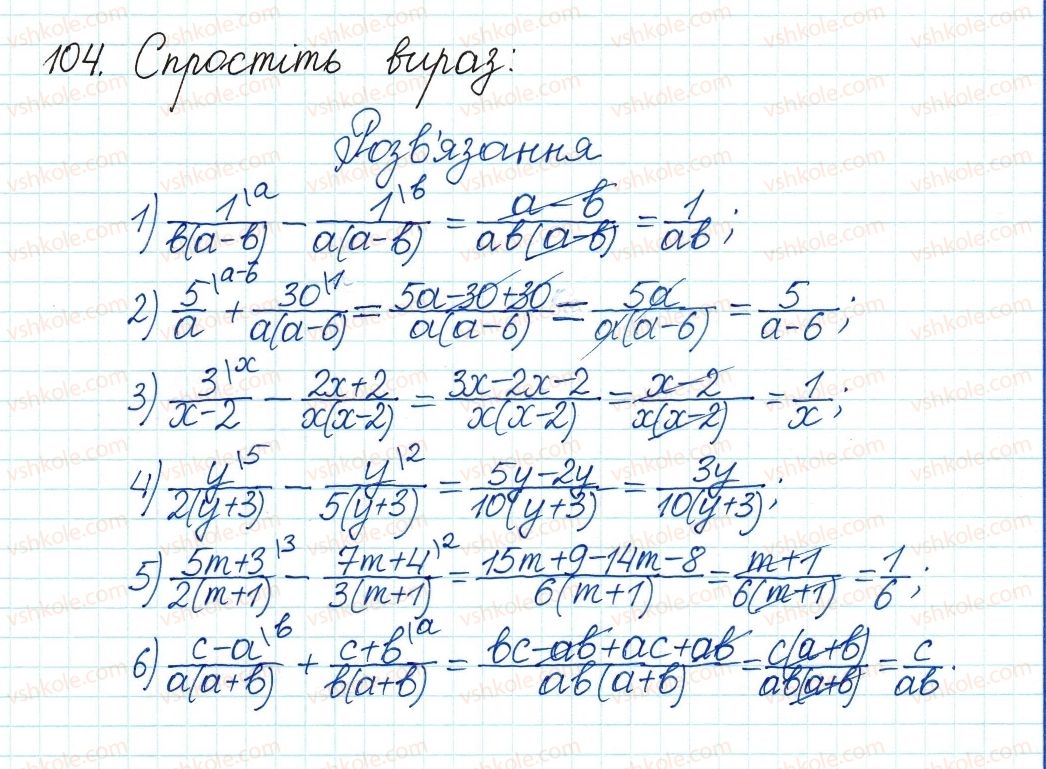 104. Спростіть вираз:
Розв'язання
1) 1\a / в(a-в) - 1\в / a(a-в) = a-в / aв(a-в) = 1 / aв;
2) 5\a-6 / a + 30\1 / a(a-6) = 5a-30+30 / a(a-6) = 5a / a(a-6) = 5 / a-6;
3) 3\x / x-2 - 2x+2 / x(x-2) = 3x-2x-2 / x(x-2) = x-2 / x(x-2) = 1 / x;
4) y\5 / 2(y+3) - y\2 / 5(y+3) = 5y-2y / 10(y+3) = 3y / 10(y+3);
5) 5m+3\3 / 2(m+1) - 7m+4\2 / 3(m+1) = 15m+9-14m-8 / 6(m+1) = m+1 / 6(m+1) = 1 / 6;
6) c-a\в / a(a+в) + c+в\a / в(a+в) = вc-aв+ac+aв / aв(a+в) = c(a+в) / aв(a+в) = c / aв.